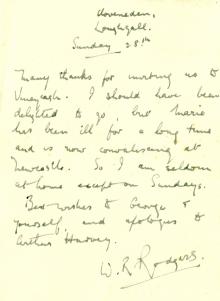 Cloveneden,
Loughgall.
Sunday 28th
Many thanks for inviting us to
Vineycash. I should have been
delighted to go, but Marie
has been ill for a long time
and is now convalescing at
Newcastle. So I am seldom
at home except on Sundays.
Best wishes to George &
yourself, and apologies to
Arthur Harvey.
W. R. Rodgers.